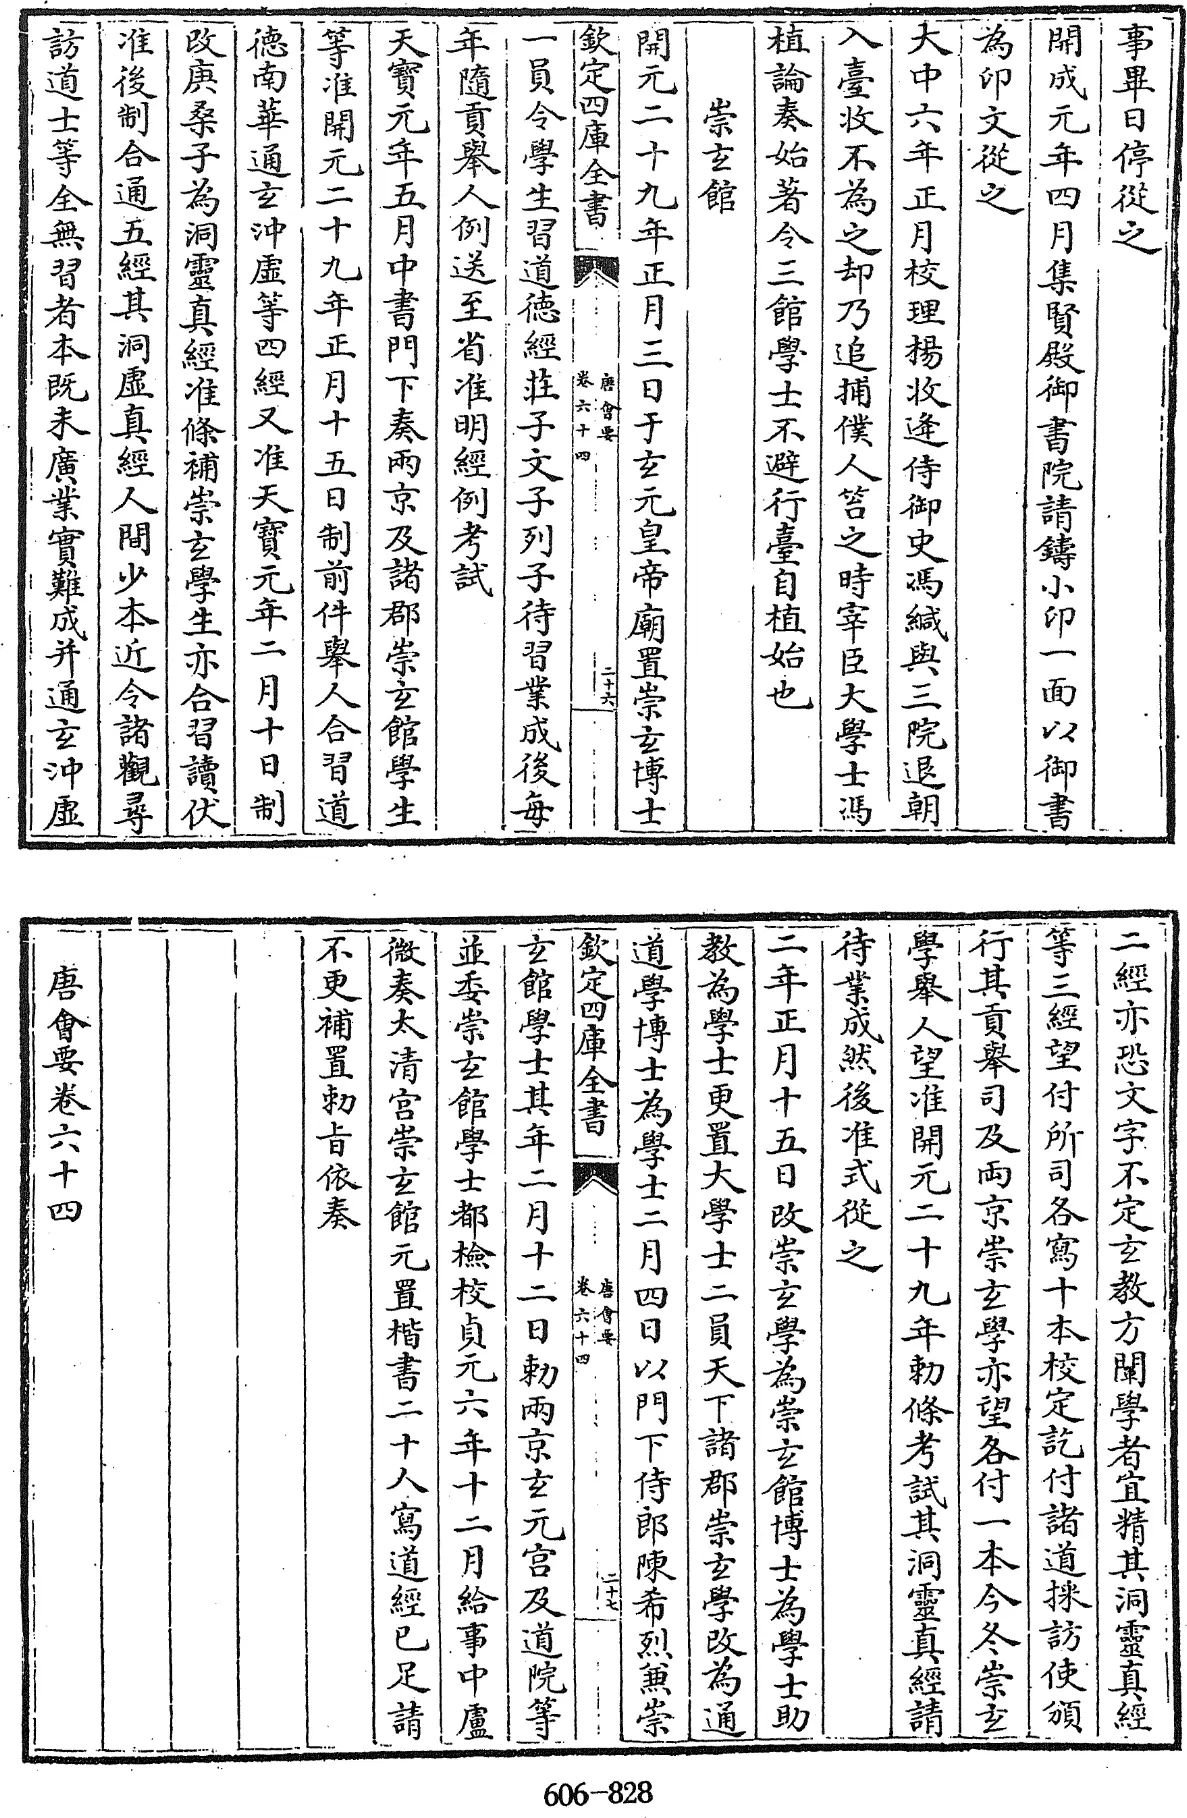 事畢日停從之
開成元年四月集賢殿御書院請鑄小印一面以御書
為印文從之
大中六年正月校理楊收逄侍御史馮緘與三院退朝
入臺收不為之却乃追捕僕人笞之時宰臣大學士馮
植論奏始著令三館學士不避行臺自植始也
崇玄館
開元二十九年正月三日于玄元皇帝廟置崇玄博士
欽定四庫全書
唐會要
卷六十四
二十六
一員令學生習道德經莊子文子列子待習業成後每
年隨貢舉人例送至省准明經例考試
天寶元年五月中書門下奏兩京及諸郡崇玄館學生
等准開元二十九年正月十五日制前件舉人合習道
德南華通玄沖虛等四經又准天寶元年二月十日制
改庚桑子為洞靈真經准條補崇玄學生亦合習讀伏
准後制合通五經其洞虛真經人間少本近令諸觀尋
訪道士等全無習者本既未廣業實難成并通玄沖虛
二經亦恐文字不定玄教方闡學者宜精其洞靈真經
等三經望付所司各寫十本校定訖付諸道採訪使頒
行其貢舉司及兩京崇玄學亦望各付一本今冬崇玄
學舉人望准開元二十九年勅條考試其洞靈真經請
待業成然後准式從之
二年正月十五日改崇玄學為崇玄館博士為學士助
教為學士更置大學士二員天下諸郡崇玄學改為通
道學博士為學士二月四日以門下侍郎陳希烈兼崇
欽定四庫全書
唐會要
卷六十四
二十七
玄館學士其年二月十二日勅兩京玄元宮及道院等
並委崇玄館學士都檢校貞元六年十二月給事中盧
微奏太清宮崇玄館元置楷書二十人寫道經已足請
不更補置勅旨依奏
唐會要卷六十四
606-828